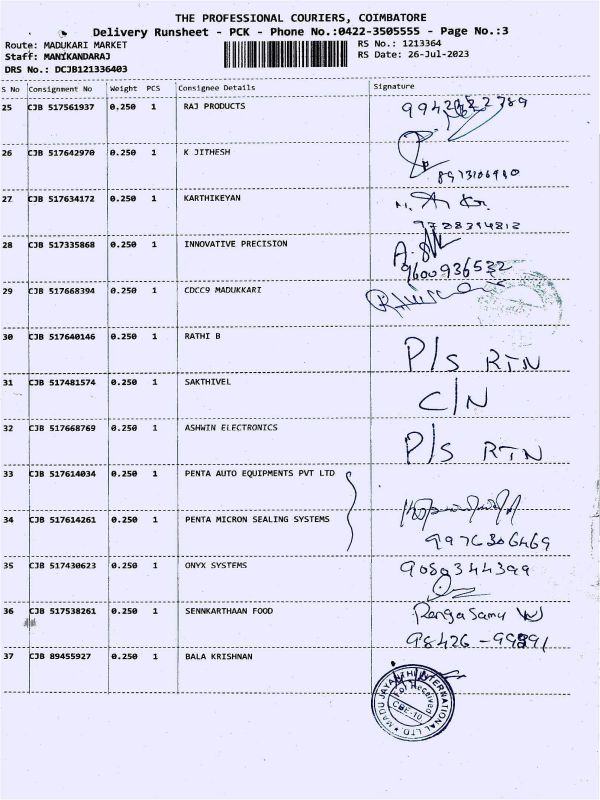 THE PROFESSIONAL COURIERS, COIMBATORE
Delivery Runsheet - PCK - Phone No.:0422-3505555 - Page No.:3
Route: MADUKARI MARKET RS No.: 1213364
Staff: MANIKANDARAJ RS Date: 26-Jul-2023
DRS No.: DCJB121336403
S No Consignment No Weight PCS Consignee Details Signature
25 CJB 517561937 0.250 1 RAJ PRODUCTS
26 CJB 517642970 0.250 1 K JITHESH
27 CJB 517634172 0.250 1 KARTHIKEYAN
28 CJB 517335868 0.250 1 INNOVATIVE PRECISION
9600936532
29 CJB 517668394 0.250 1 CDCC9 MADUKKARI
30 CJB 517640146 0.250 1 RATHI B P/S RTN
31 CJB 517481574 0.250 1 SAKTHIVEL C/N
32 CJB 517668769 0.250 1 ASHWIN ELECTRONICS P/S RTN
33 CJB 517614034 0.250 1 PENTA AUTO EQUIPMENTS PVT LTD
34 CJB 517614261 0.250 1 PENTA MICRON SEALING SYSTEMS
9976306469
35 CJB 517430623 0.250 1 ONYX SYSTEMS 9080344399
36 CJB 517538261 0.250 1 SENNKARTHAAN FOOD Renga Samy
37 CJB 89455927 0.250 1 BALA KRISHNAN
MADU JAYANTHI INTERNATIONAL LTD
Received
CBE-10